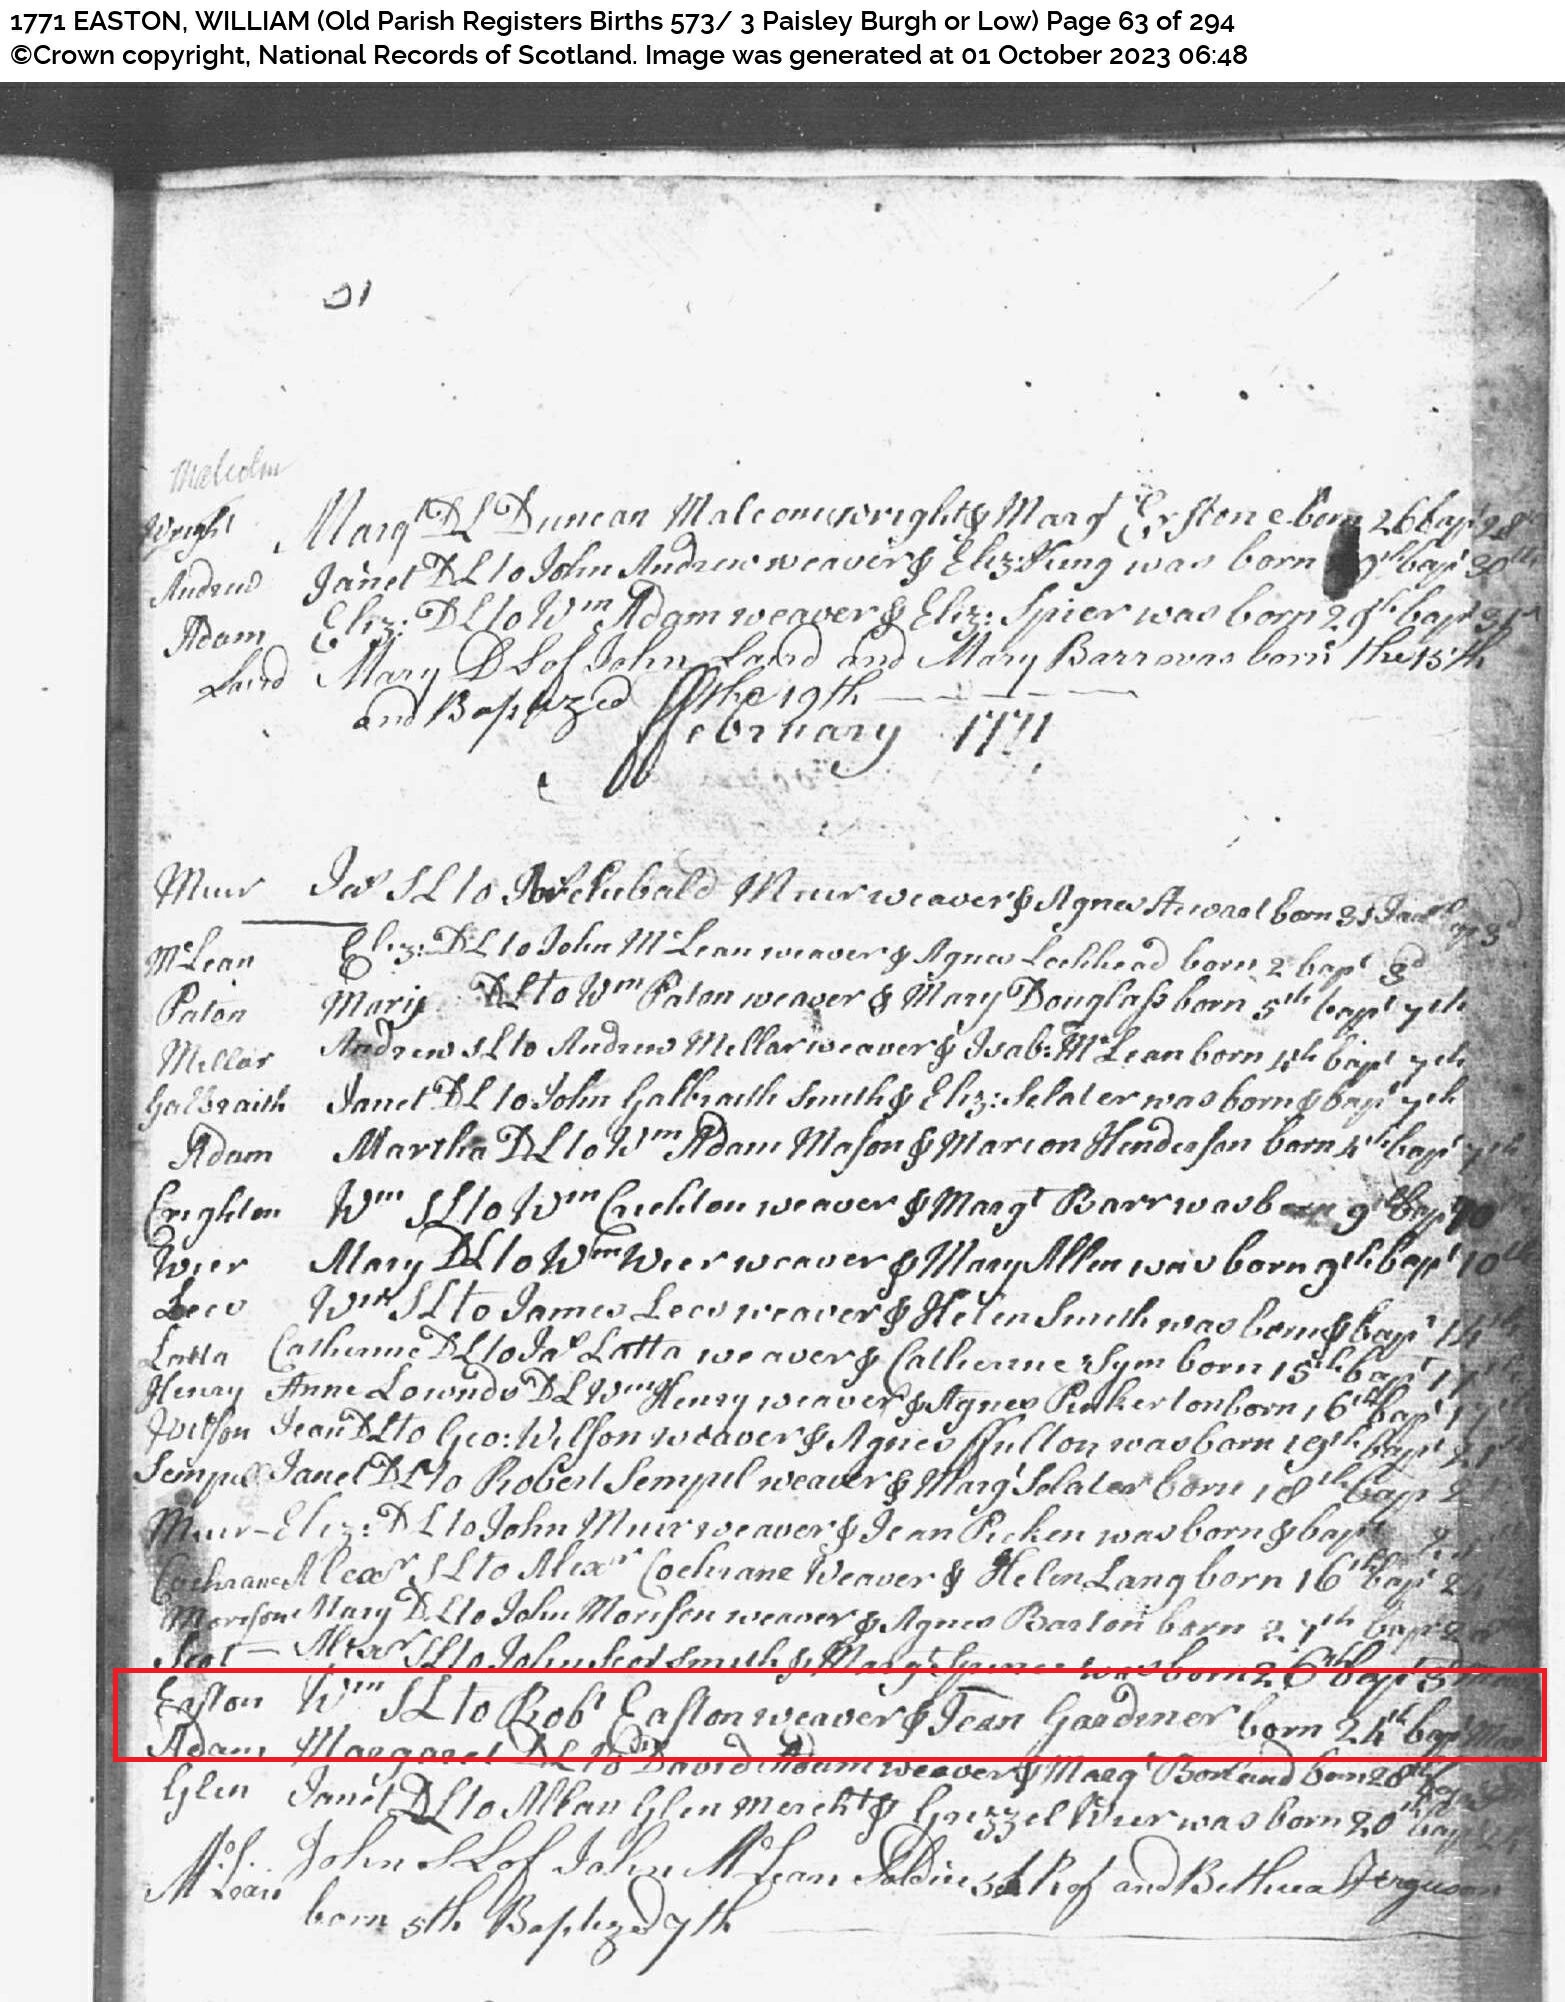 1771 EASTON, WILLIAM (Old Parish Registers Births 573/ 3 Paisley Burgh or Low) Page 63 of 294
©Crown copyright, National Records of Scotland. Image was generated at 01 October 2023 06:48
Malcolm
Wright Margt DL Duncan Malcomwright & Margt born 26 bapt 28
Andrew Janet DL to John Andrew weaver & Eliz: King was born bapt 30th
Adam Eliz: DL to Wm Adam weaver & Eliz: Spier was born 29th bapt 31st
Laird Mary DL of John Laird and Mary Barr was born the 15th
and Baptized the 19th
February 1771
Muir Jas SL to Archibald Muir weaver & Agnes Stewart born 31 3d
McLean Eliz: DL to John McLean weaver & Agnes Lochhead born 2 bapt 3d
Paton Mary DL to Wm Paton weaver & Mary Douglass born 5th bapt 7th
Millar Andrew SL to Andrew Millar weaver & Isab: McLean born 4th bapt 7th
Galbraith Janet DL to John Galbraith Smith & Eliz: Sclater was born & bapt 7th
Adam Martha DL to Wm Adam Mason & Marion Henderson born 4th bapt 7th
Crighton Wm SL to Wm Crichton weaver & Margt Barr was born 9th bapt 10
Wier Mary DL to Wm Wier weaver & Mary Allen was born 9th bapt 10th
Lees Wm SL to James Lees weaver & Helen Smith was born & bapt 14th
Latta Catherine DL to Jas Latta weaver & Catherine Sym born 15th bapt 17th
Henry Anne Lownds DL Wm Henry weaver & Agnes Pinkerton born 16th bapt 17th
Wilson Jean DL to Geo: Wilson weaver & Agnes ffulton was born 19th bapt 21st
Sempill Janet DL to Robert Sempil weaver & Margt Sclater born 18th bapt
Muir - Eliz: DL to John Muir weaver & Jean Picken was born & bapt
Cochrane Alexr SL to Alexr Cochrane Weaver & Helen Lang born 16th bapt 24
Morison Mary DL to John Morison weaver & Agnes Barton born 27th bapt
Scot - Alexr SL to John Scot smith & Margt Spence was born 26th bapt 3d
Easton Wm SL to Robt Easton weaver & Jean Gardner born 24th bapt Mar
Adam Margaret DL to David Adam weaver & Margt Borland born 28th
Glen Janet DL to Allan Glen Mercht & Grizzel Wier was born 20th bapt
McLean John SL of John McLean Soldier and Bethia Ferguson
born 5th Baptized 7th